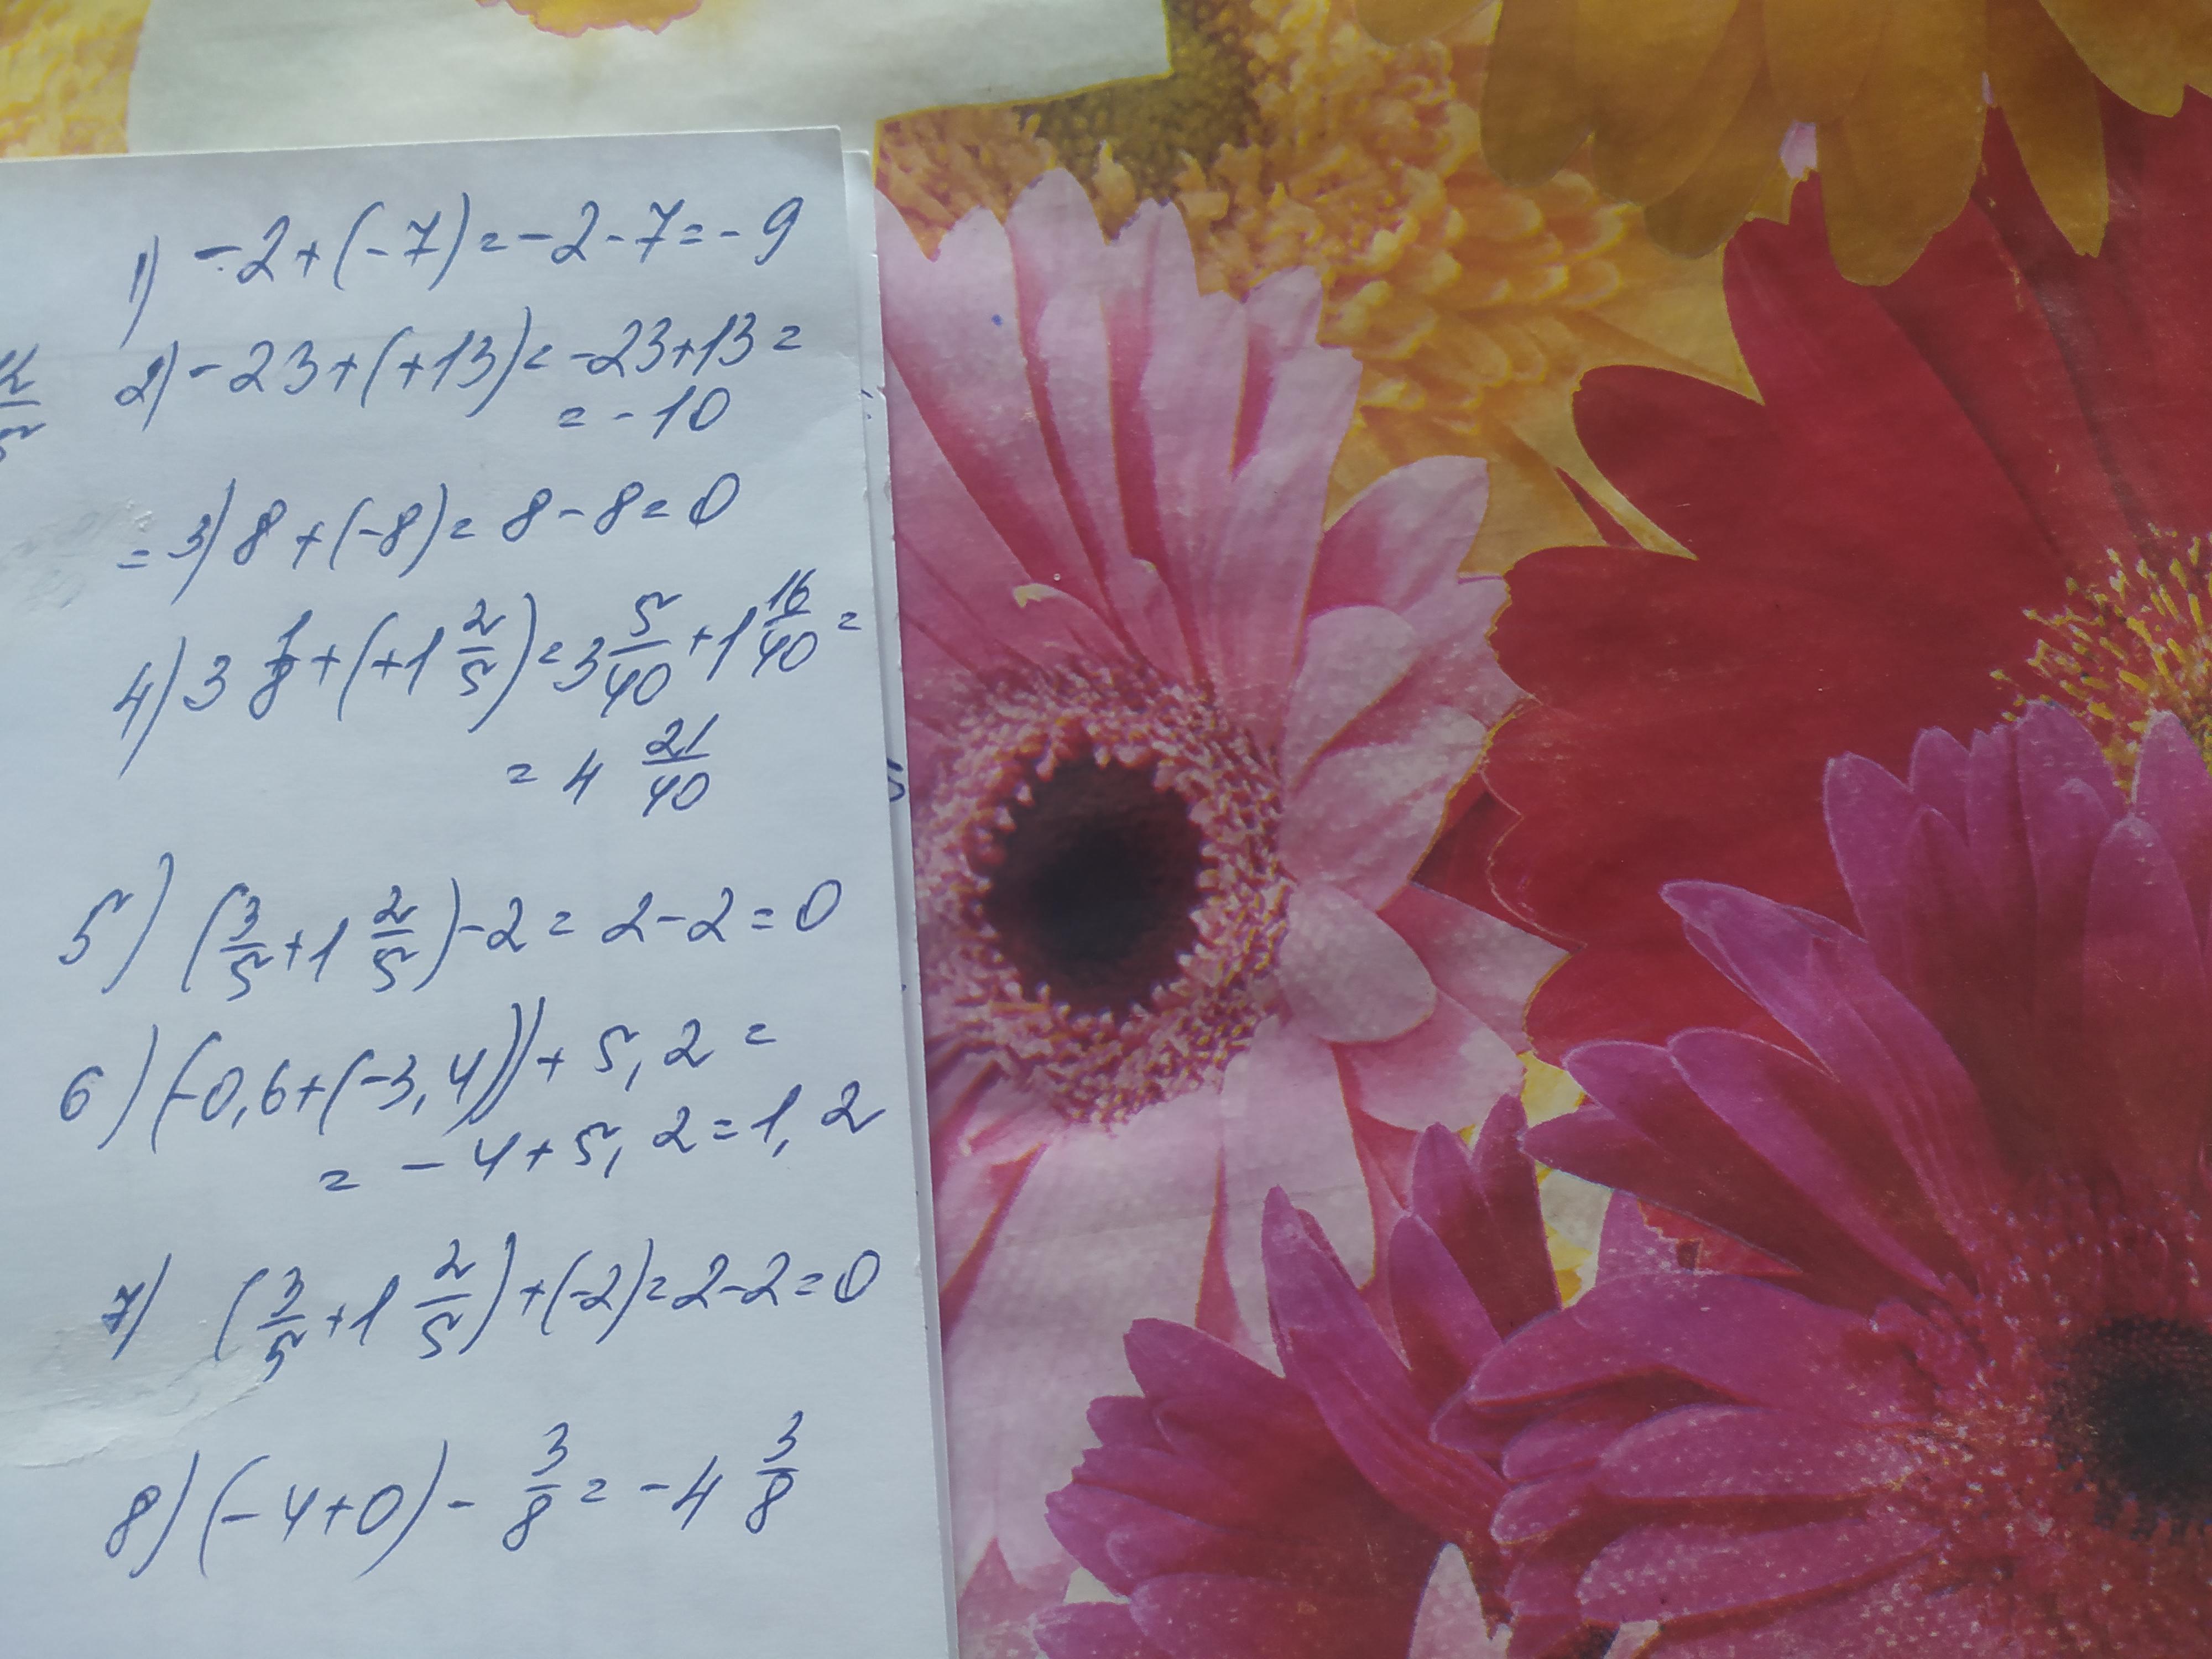 1) -2+(-7)=-2-7=-9
2) -23+(+13)=-23+13=
=-10
=3) 8+(-8)=8-8=0
4) 3 1/8+(+1 2/5)=3 5/40+1 16/40=
=4 21/40
5) (3/5+1 2/5)-2=2-2=0
6) (-0,6+(-3,4))+5,2=
=-4+5,2=1,2
7) (3/5+1 2/5)+(-2)=2-2=0
8) (-4+0)-3/8=-4 3/8